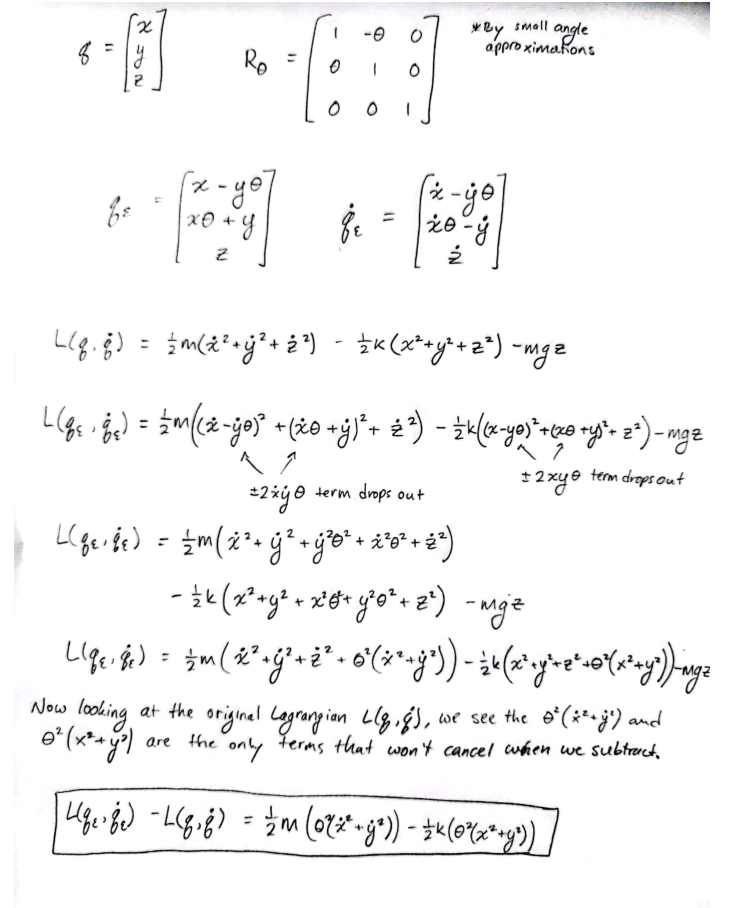 q = [x y z]   R_θ = [1 -θ 0; θ 1 0; 0 0 1]   *By small angle approximations
q_ε = [x - yθ; xθ + y; z]   q̇_ε = [ẋ - ẏθ; ẋθ - ẏ; ż]
L(q, q̇) = ½m(ẋ² + ẏ² + ż²) - ½k(x² + y² + z²) - mgz
L(q_ε, q̇_ε) = ½m((ẋ - ẏθ)² + (ẋθ + ẏ)² + ż²) - ½k((x - yθ)² + (xθ + y)² + z²) - mgz
±2ẋẏθ term drops out   ±2xyθ term drops out
L(q_ε, q̇_ε) = ½m(ẋ² + ẏ² + ẏ²θ² + ẋ²θ² + ż²)
- ½k(x² + y² + x²θ² + y²θ² + z²) - mgz
L(q_ε, q̇_ε) = ½m(ẋ² + ẏ² + ż² + θ²(ẋ² + ẏ²)) - ½k(x² + y² + z² + θ²(x² + y²)) - mgz
Now looking at the original Lagrangian L(q, q̇), we see the θ²(ẋ² + ẏ²) and
θ²(x² + y²) are the only terms that won't cancel when we subtract.
L(q_ε, q̇_ε) - L(q, q̇) = ½m(θ²(ẋ² + ẏ²)) - ½k(θ²(x² + y²))